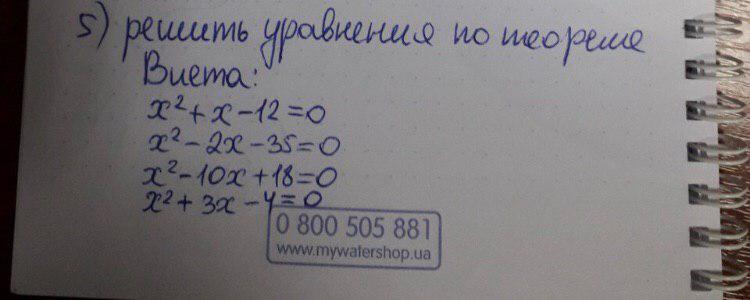 5) решить уравнения по теореме
Виета:
x²+x-12=0
x²-2x-35=0
x²-10x+18=0
x²+3x-4=0
0 800 505 881
www.mywatershop.ua